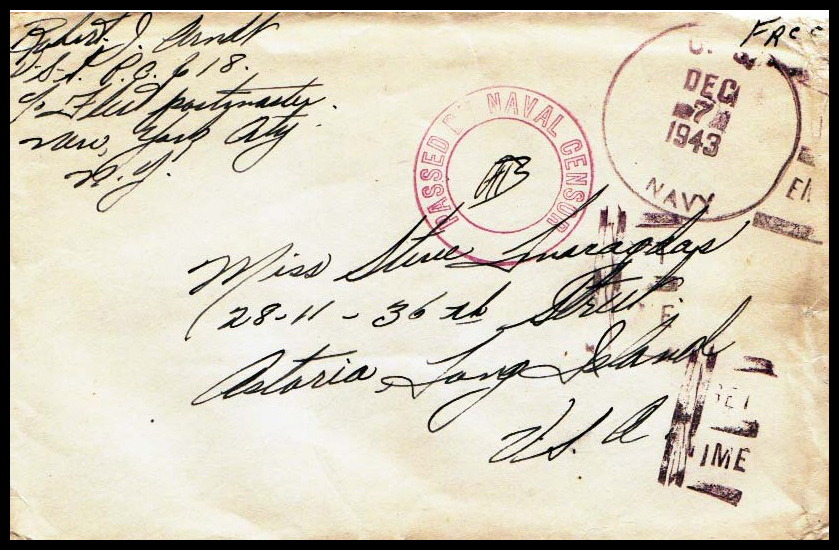 Robert J. Arndt
P.C. 618.
c/o Fleet postmaster.
New York City.
N.Y.
Free
PASSED BY NAVAL CENSOR
U. S.
DEC
7
1943
NAVY
Miss
28-11-36th Street
Astoria, Long Island
U.S.A.
IME